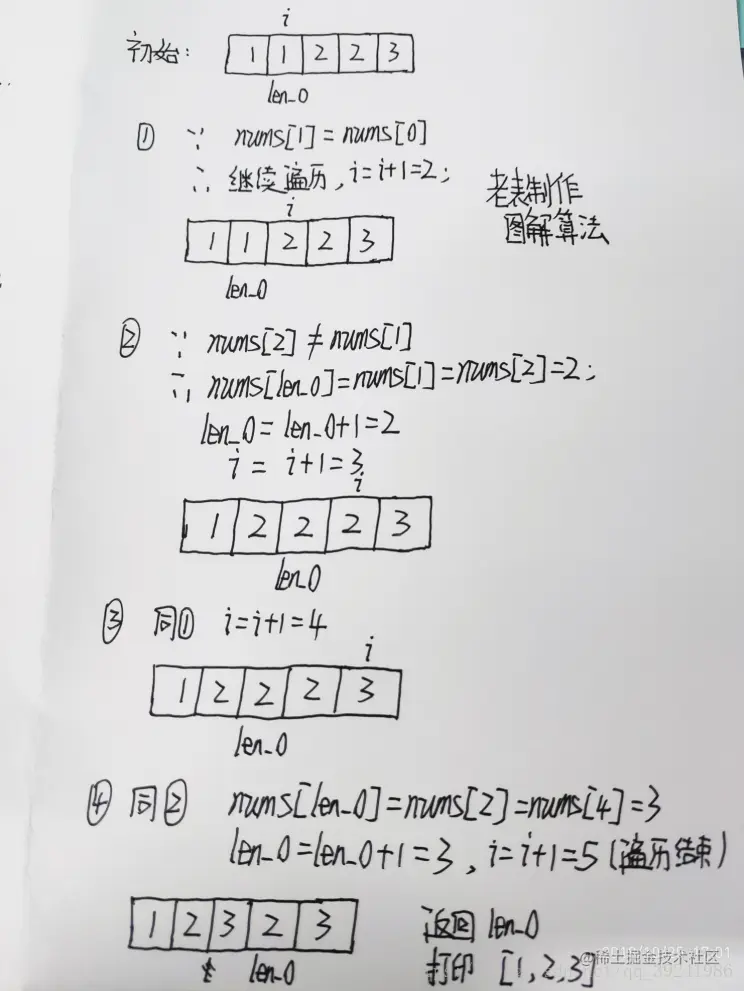 i
初始: 1 1 2 2 3
len_0
① ∵ nums[1] = nums[0]
∴ 继续遍历, i=i+1=2;
老表制作
图解算法
i
1 1 2 2 3
len_0
② ∵ nums[2] ≠ nums[1]
∴ nums[len_0]=nums[1]=nums[2]=2;
len_0 = len_0+1=2
i = i+1=3
i
1 2 2 2 3
len_0
③ 同① i=i+1=4
i
1 2 2 2 3
len_0
④ 同② nums[len_0]=nums[2]=nums[4]=3
len_0=len_0+1=3, i=i+1=5 (遍历结束)
1 2 3 2 3
len_0
返回 len_0
打印 [1,2,3]
@稀土掘金技术社区